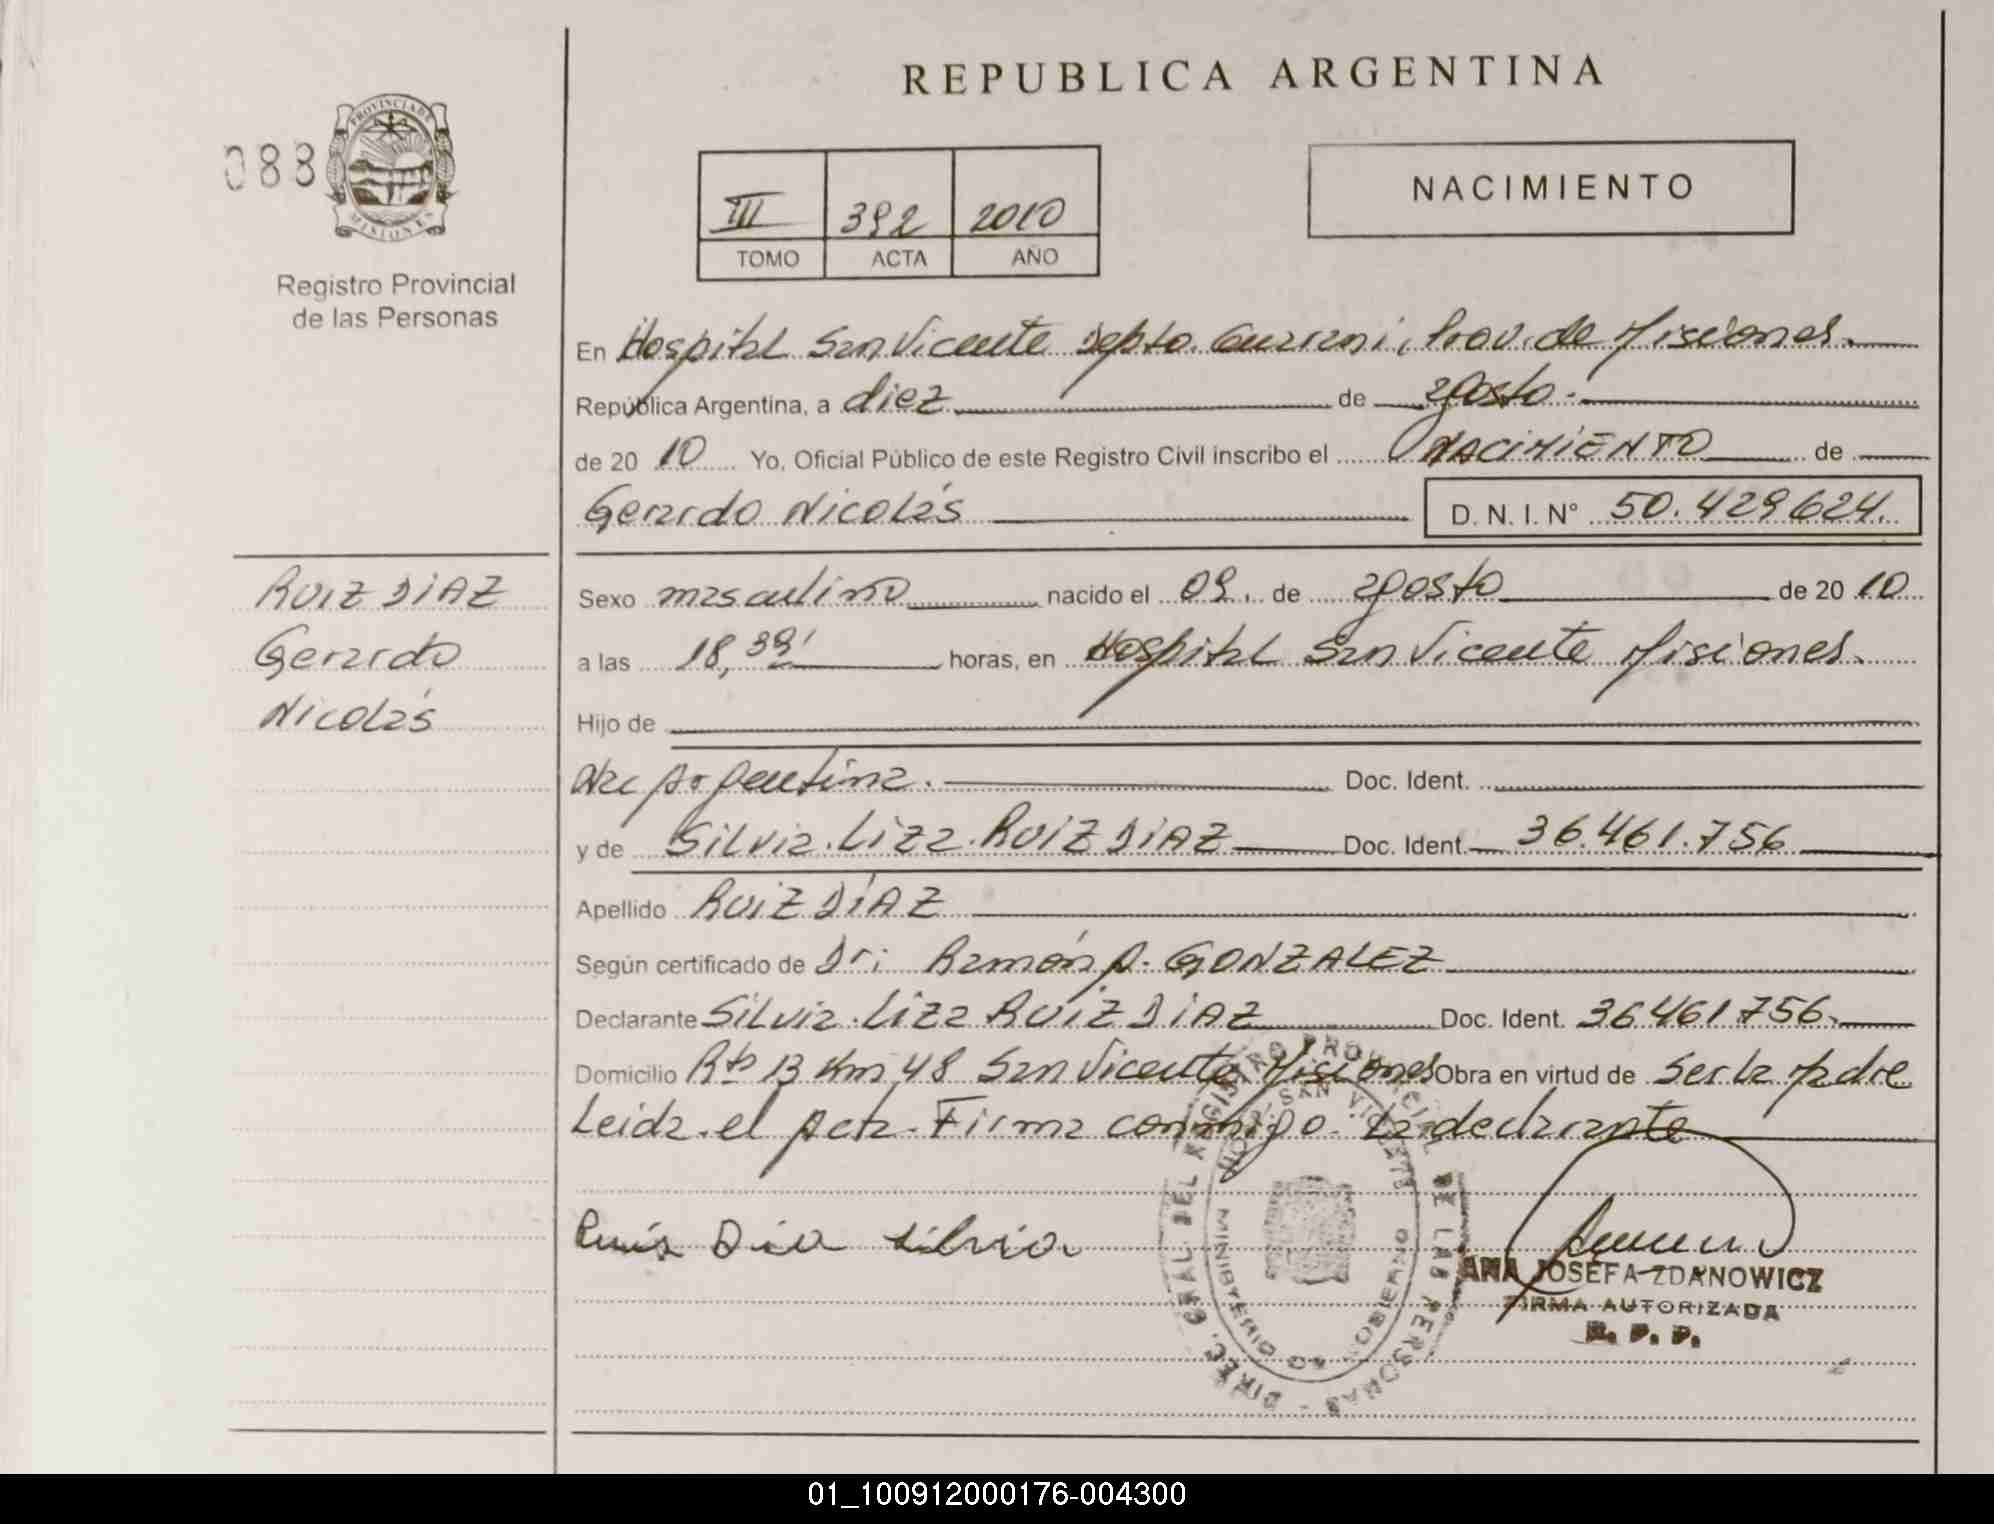 REPUBLICA ARGENTINA
088
PROVINCIA DE MISIONES
Registro Provincial
de las Personas
III 392 2010
TOMO ACTA AÑO
NACIMIENTO
En Hospital San Vicente Depto. Guarani, Prov. de Misiones.
República Argentina, a diez de agosto.
de 20 10 Yo, Oficial Público de este Registro Civil inscribo el NACIMIENTO de
Gerardo Nicolás D. N. I. N° 50.429624.
RUIZ DIAZ
Gerardo
Nicolás
Sexo masculino nacido el 09. de agosto de 20 10
a las 18,39' horas, en Hospital San Vicente Misiones.
Hijo de
Nac Argentina. Doc. Ident.
y de Silvia. Liza. RUIZ DIAZ Doc. Ident. 36.461.756
Apellido RUIZ DÍAZ
Según certificado de Dr: Ramón A. GONZALEZ
Declarante Silvia. Liza RUIZ DIAZ Doc. Ident. 36461.756.
Domicilio Rta 13 Km 48 San Vicente Misiones Obra en virtud de Ser la Madre
Leida el Acta. Firma conmigo. La declarante
Ruis Dia silvia
DIREC. GRAL. DEL REGISTRO PROVINCIAL DE LAS PERSONAS
HOSPITAL SAN VICENTE
MINISTERIO DE GOBIERNO
ANA JOSEFA ZDANOWICZ
FIRMA AUTORIZADA
R. P. P.
01_100912000176-004300